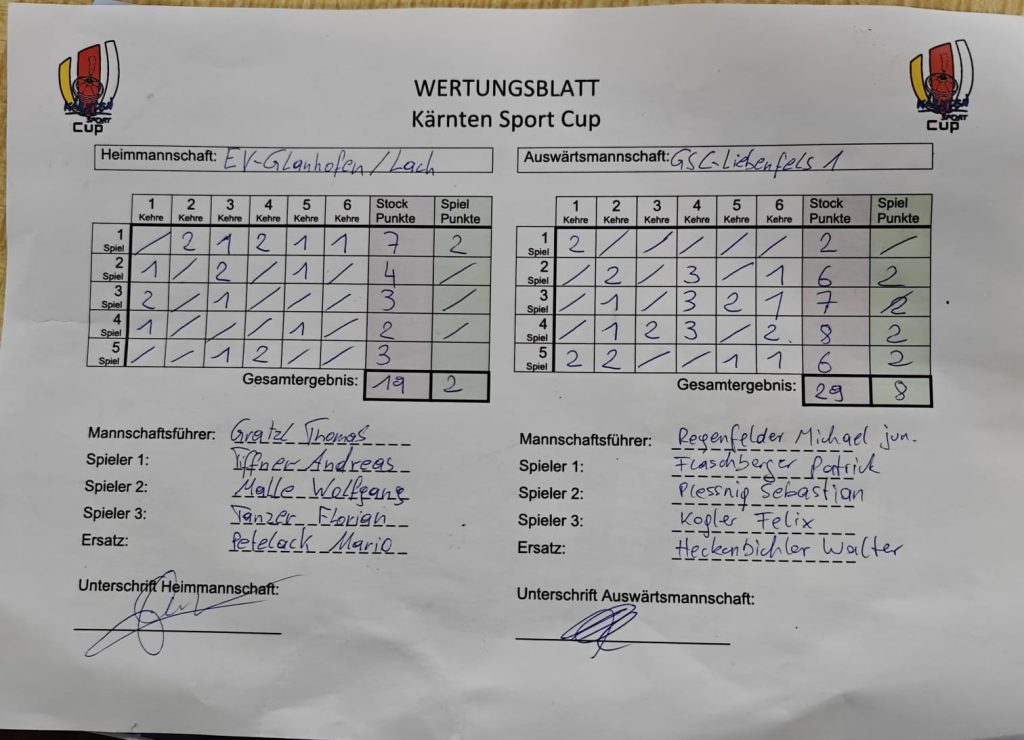 KÄRNTEN SPORT Cup
KÄRNTEN SPORT Cup
WERTUNGSBLATT
Kärnten Sport Cup
Heimmannschaft: EV-Glanhofen/Lach
Auswärtsmannschaft: GSC-Liebenfels 1
1 Kehre 2 Kehre 3 Kehre 4 Kehre 5 Kehre 6 Kehre Stock Punkte Spiel Punkte
1 Spiel / 2 1 2 1 1 7 2
2 Spiel 1 / 2 / 1 / 4 /
3 Spiel 2 / 1 / / / 3 /
4 Spiel 1 / / / 1 / 2 /
5 Spiel / / 1 2 / / 3
Gesamtergebnis: 19 2
1 Kehre 2 Kehre 3 Kehre 4 Kehre 5 Kehre 6 Kehre Stock Punkte Spiel Punkte
1 Spiel 2 / / / / / 2 /
2 Spiel / 2 / 3 / 1 6 2
3 Spiel / 1 / 3 2 1 7 2
4 Spiel / 1 2 3 / 2. 8 2
5 Spiel 2 2 / / 1 1 6 2
Gesamtergebnis: 29 8
Mannschaftsführer: Gratzl Thomas
Spieler 1: Tiffner Andreas
Spieler 2: Malle Wolfgang
Spieler 3: Tanzer Florian
Ersatz: Petelack Mario
Unterschrift Heimmannschaft:
Mannschaftsführer: Regenfelder Michael jun.
Spieler 1: Flaschberger Patrick
Spieler 2: Plessnig Sebastian
Spieler 3: Kogler Felix
Ersatz: Heckenbichler Walter
Unterschrift Auswärtsmannschaft: